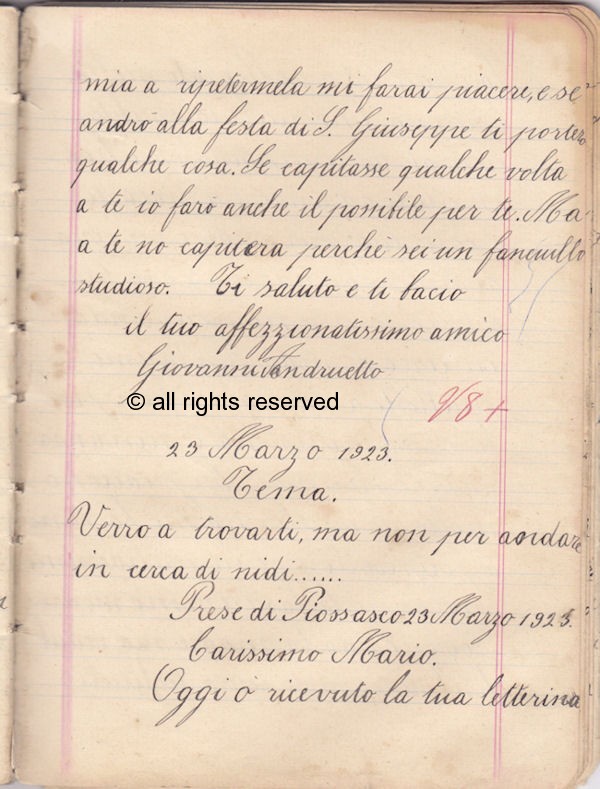 mia a ripetermela mi farai piacere, e se
andrò alla festa di S. Giuseppe ti porterò
qualche cosa. Se capitasse qualche volta
a te io farò anche il possibile per te. Ma
a te no capitera perchè sei un fanciullo
studioso. Ti saluto e ti bacio
il tuo affezzionatissimo amico
Giovanni Andruetto
© all rights reserved
9/8+
23 Marzo 1923.
Tema.
Verrò a trovarti, ma non per andare
in cerca di nidi......
Prese di Piossasco 23 Marzo 1923.
Carissimo Mario.
Oggi ò ricevuto la tua letterina